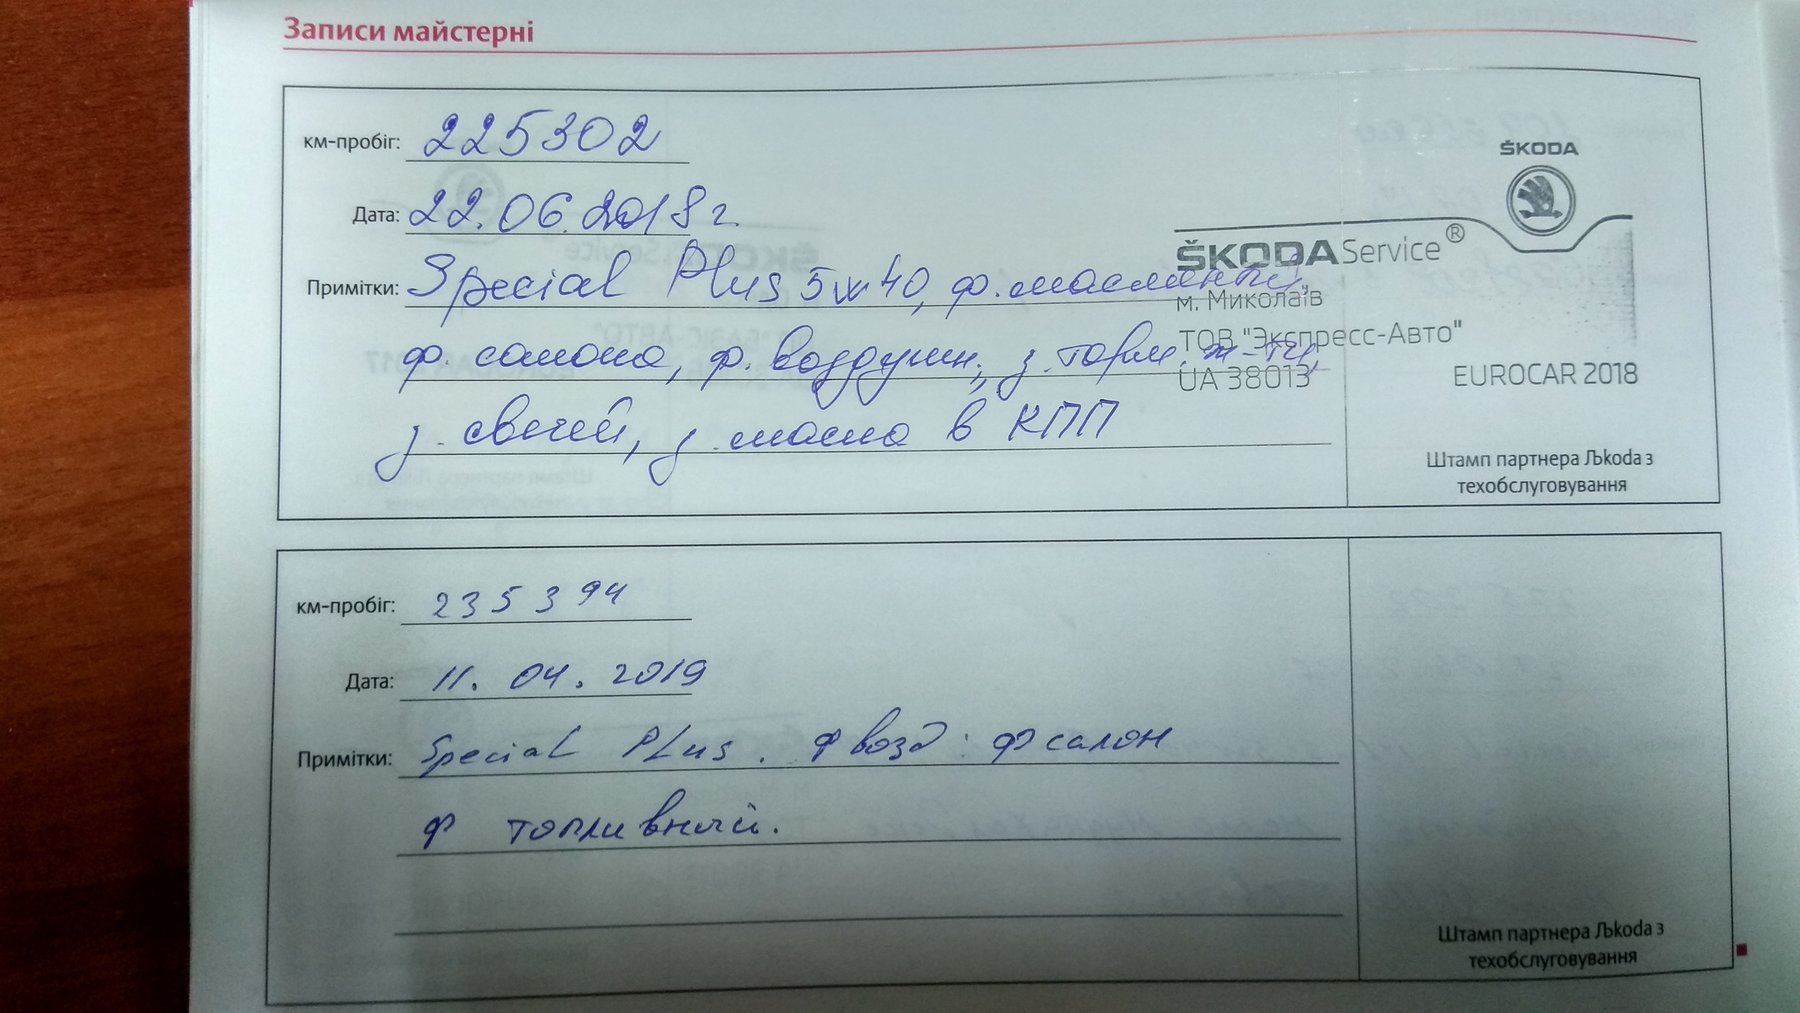 Записи майстерні
км-пробіг: 225302
Дата: 22.06.2018 г.
Примітки: Special Plus 5w40, ф.масляный,
ф. салона, ф. воздушн., з. торм. ж-ти,
з. свечей, з. масла в КПП
ŠKODA
ŠKODA Service®
м. Миколаїв
ТОВ "Экспресс-Авто"
UA 38013
EUROCAR 2018
Штамп партнера Љkoda з
техобслуговування
км-пробіг: 235394
Дата: 11.04.2019
Примітки: Special Plus. ф возд. ф салон
ф топливный.
Штамп партнера Љkoda з
техобслуговування